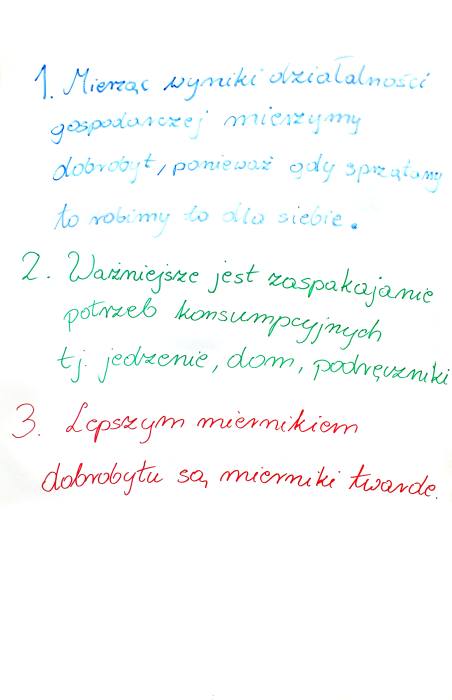 1. Mierząc wyniki działalności
gospodarczej mierzymy
dobrobyt, ponieważ gdy sprzątamy
to robimy to dla siebie.
2. Ważniejsze jest zaspakajanie
potrzeb konsumpcyjnych
tj. jedzenie, dom, podręczniki
3. Lepszym miernikiem
dobrobytu są mierniki twarde.